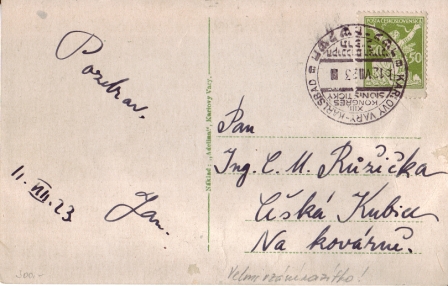 Pozdrav.
11. VIII. 23
Jan.
Náklad: „Adelina“, Karlovy Vary.
POŠTA ČESKOSLOVENSKÁ
50
KARLOVY VARY-KARLSBAD
XIII.
KONGRES
SIONISTICKÝ
Pan
Ing. C. M. Růžička
Česká Kubice
Na kovárně.
300.-